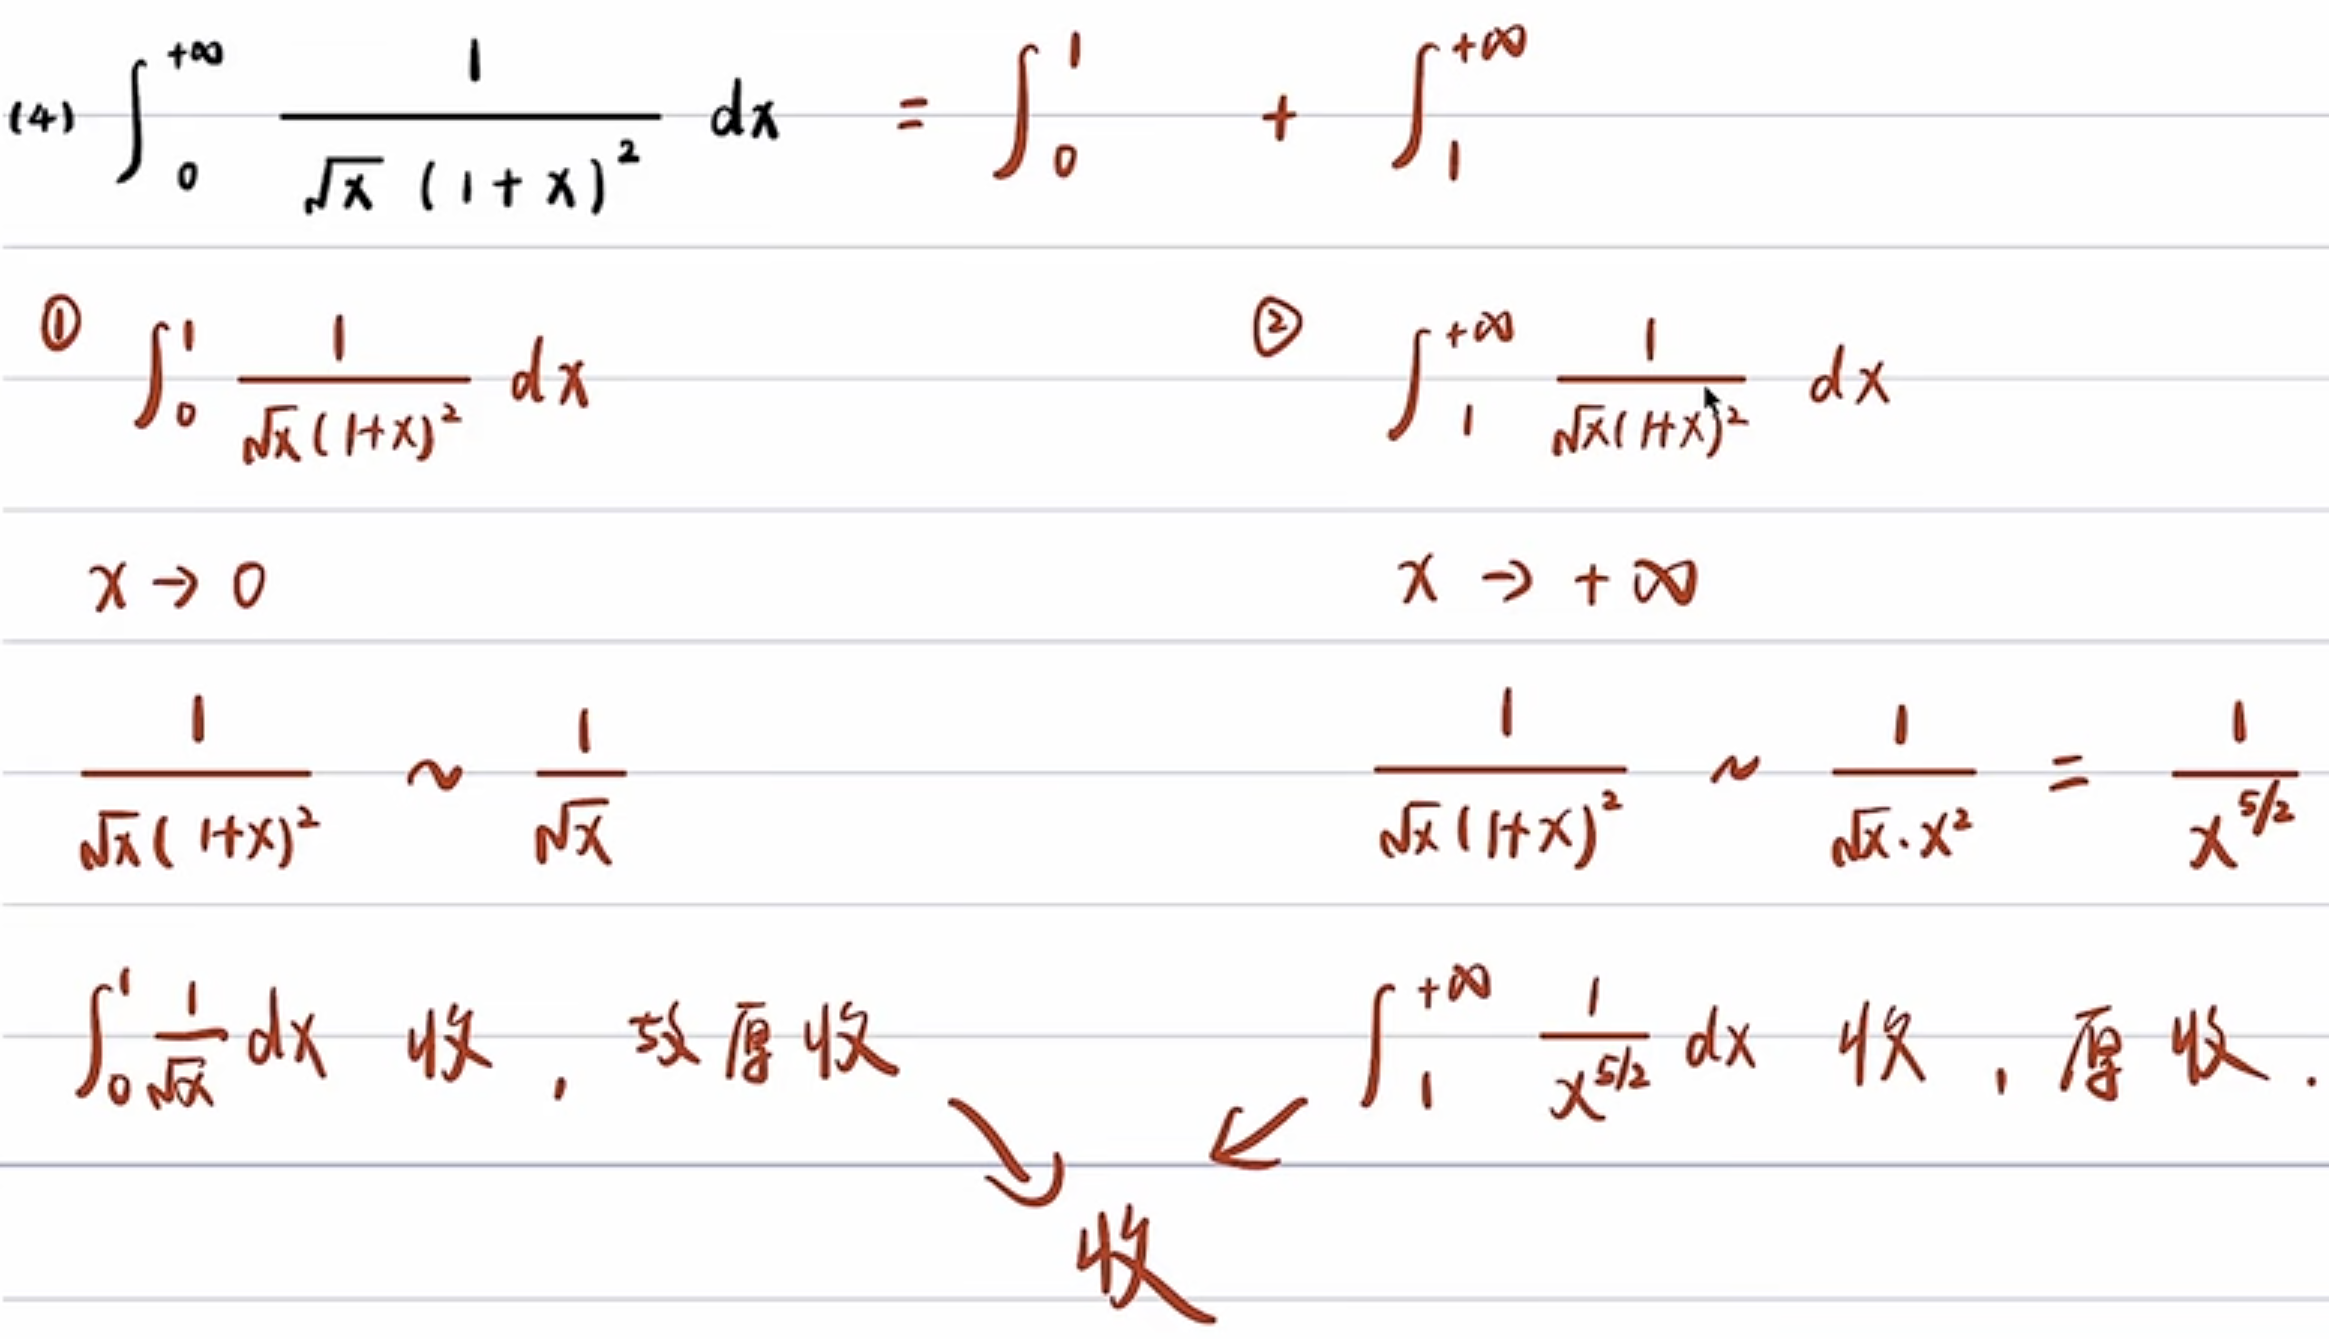 (4) ∫₀^{+∞} 1/(√x (1+x)²) dx = ∫₀¹ + ∫₁^{+∞}
① ∫₀¹ 1/(√x(1+x)²) dx ② ∫₁^{+∞} 1/(√x(1+x)²) dx
x → 0 x → +∞
1/(√x(1+x)²) ~ 1/√x 1/(√x(1+x)²) ~ 1/(√x·x²) = 1/x^{5/2}
∫₀¹ 1/√x dx 收, 故原收 ∫₁^{+∞} 1/x^{5/2} dx 收, 原收.
收